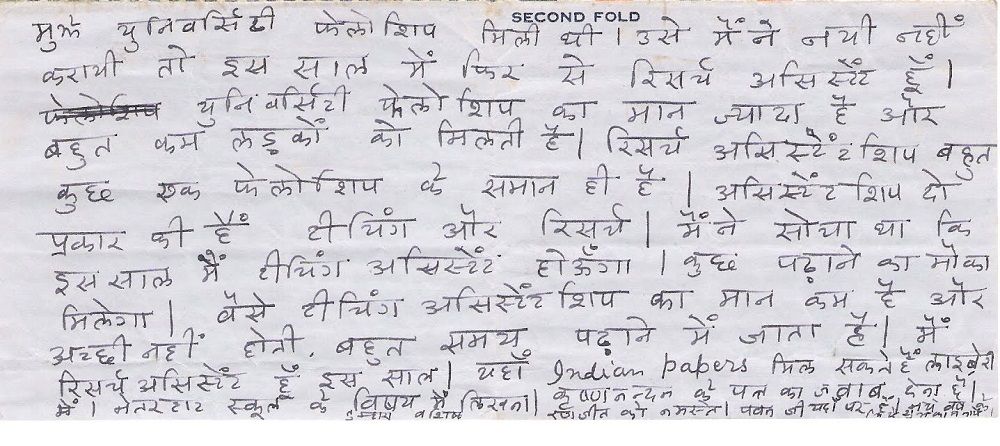 SECOND FOLD
मुझे युनिवर्सिटी फेलोशिप मिली थी। उसे मैंने नयी नहीं
करायी तो इस साल में फिर से रिसर्च असिस्टेंट हूँ।
युनिवर्सिटी फेलोशिप का मान ज्यादा है और
बहुत कम लड़कों को मिलती है। रिसर्च असिस्टेंटशिप बहुत
कुछ एक फेलोशिप के समान ही है। असिस्टेंटशिप दो
प्रकार की हैं टीचिंग और रिसर्च। मैंने सोचा था कि
इस साल मैं टीचिंग असिस्टेंट होऊँगा। कुछ पढ़ाने का मौका
मिलेगा। वैसे टीचिंग असिस्टेंटशिप का मान कम है और
अच्छी नहीं होती. बहुत समय पढ़ाने में जाता है। मैं
रिसर्च असिस्टेंट हूँ इस साल। यहाँ Indian papers मिल सकते हैं लाइब्रेरी
में। नेतरहाट स्कूल के विषय में लिखना। कृष्णनन्दन के पत्र का जवाब देना है।
को नमस्ते।